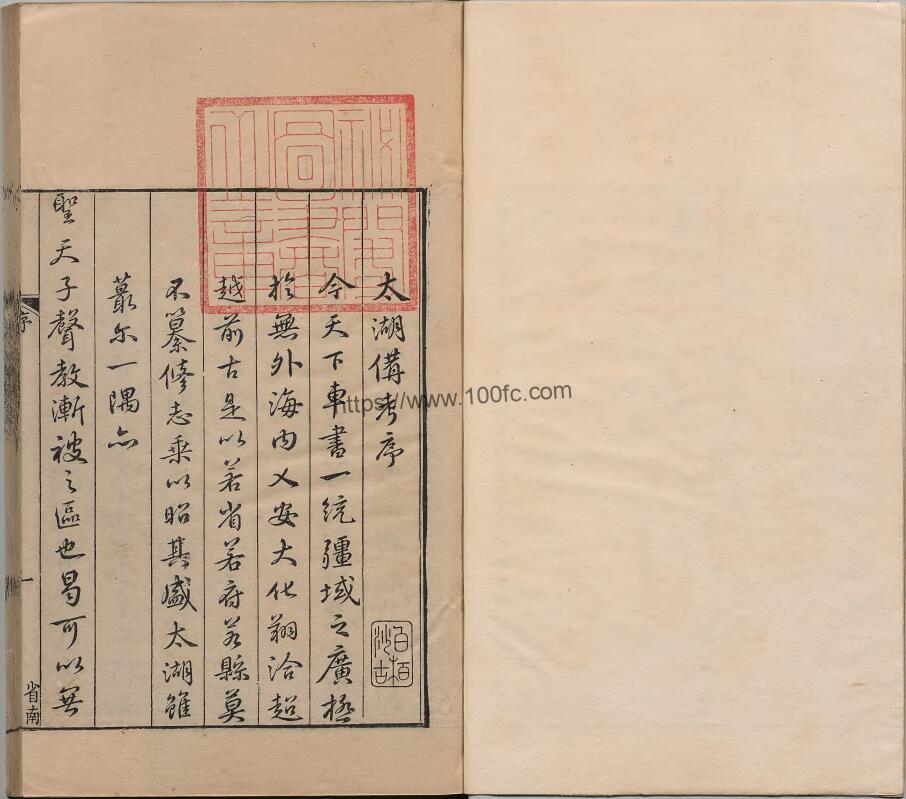 太湖備考序
今天下車書一統疆域之廣極
於無外海內乂安大化翔洽超
越前古是以若省若府若縣莫
不纂修志乘以昭其盛太湖雖
蕞尓一隅亦
聖天子聲教漸被之區也曷可以無
序
一
省南
https://www.100fc.com